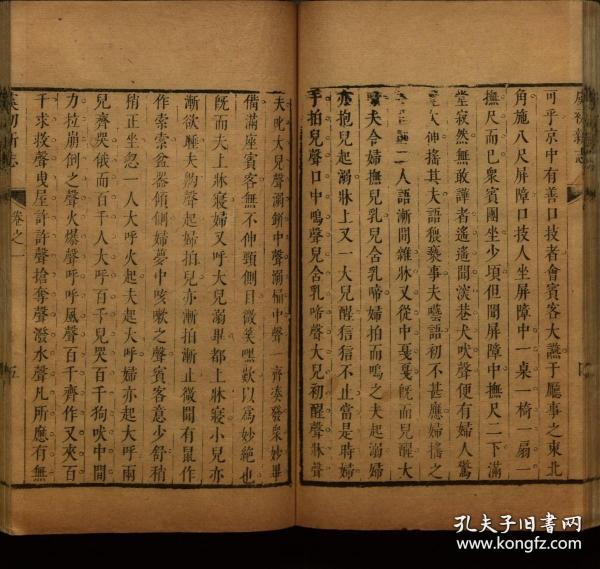 可乎京中有善口技者會賓客大讌于廳事之東北
角施八尺屏障口技人坐屏障中一桌一椅一扇一
撫尺而已衆賓團坐少頃但聞屏障中撫尺二下滿
堂寂然無敢譁者遙遙聞深巷犬吠聲便有婦人驚
欠伸搖其夫語猥褻事夫囈語初不甚應婦搖之
二人語漸間雜牀又從中戛戛旣而兒醒大
夫令婦撫兒乳兒含乳啼婦拍而嗚之夫起溺
亦抱兒起溺牀上又一大兒醒狺狺不止當是時婦
手拍兒聲口中嗚聲兒含乳啼聲大兒初醒聲牀聲
夫叱大兒聲溺缾中聲溺桶中聲一齊湊發衆妙畢
備滿座賓客無不伸頸側目微笑嘿歎以爲妙絶也
旣而夫上牀寢婦又呼大兒溺畢都上牀寢小兒亦
漸欲睡夫齁聲起婦拍兒亦漸拍漸止微聞有鼠作
作索索盆器傾側婦夢中咳嗽之聲賓客意少舒稍
稍正坐忽一人大呼火起夫起大呼婦亦起大呼兩
兒齊哭俄而百千人大呼百千兒哭百千狗吠中間
力拉崩倒之聲火爆聲呼呼風聲百千齊作又夾百
千求救聲曳屋許許聲搶奪聲潑水聲凡所應有無
虞初新志
卷之一
五
孔夫子旧书网
www.kongfz.com